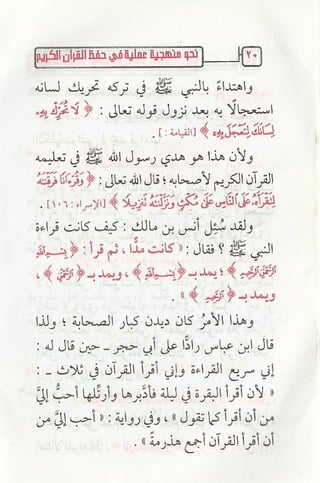 ٢٠ نحو منهجية عملية في حفظ القرآن الكريم
واهتداءً بالنبي ﷺ في تركه تحريك لسانه
استعجالًا به بعد نزول قوله تعالى : ﴿ لَا تُحَرِّكْ بِهِۦ
لِسَانَكَ لِتَعْجَلَ بِهِۦٓ ﴾ [القيامة : ] .
ولأن هذا هو هدي رسول الله ﷺ في تعليمه
القرآن الكريم لأصحابه؛ قال الله تعالى: ﴿ وَقُرْءَانًا فَرَقْنَٰهُ
لِتَقْرَأَهُۥ عَلَى ٱلنَّاسِ عَلَىٰ مُكْثٍ وَنَزَّلْنَٰهُ تَنزِيلًا ﴾ [الإسراء: ١٠٦] .
ولقد سُئِل أنس بن مالك : كيف كانت قراءة
النبي ﷺ ؟ فقال : « كانت مدًّا ، ثم قرأ : ﴿ بِسْمِ ٱللَّهِ
ٱلرَّحْمَٰنِ ٱلرَّحِيمِ ﴾ ؛ يمد بـ ﴿ بِسْمِ ٱللَّهِ ﴾ ، ويمد بـ ﴿ ٱلرَّحْمَٰنِ ﴾ ،
ويمد بـ ﴿ ٱلرَّحِيمِ ﴾ » .
وهذا الأمرُ كان ديدن كبار الصحابة ؛ ولذا
قال ابن عباس رادًّا على أبي حجر ـ حين قال له :
إني سريع القراءة وإني أقرأ القرآن في ثلاث ـ :
« لأن أقرأ البقرة في ليلة فأدَّبرها وأرتِّلها أحبُّ إليَّ
من أن أقرأ كما تقول » ، وفي رواية : « أحب إليَّ من
أن أقرأ القرآن أجمع هذرمة » .